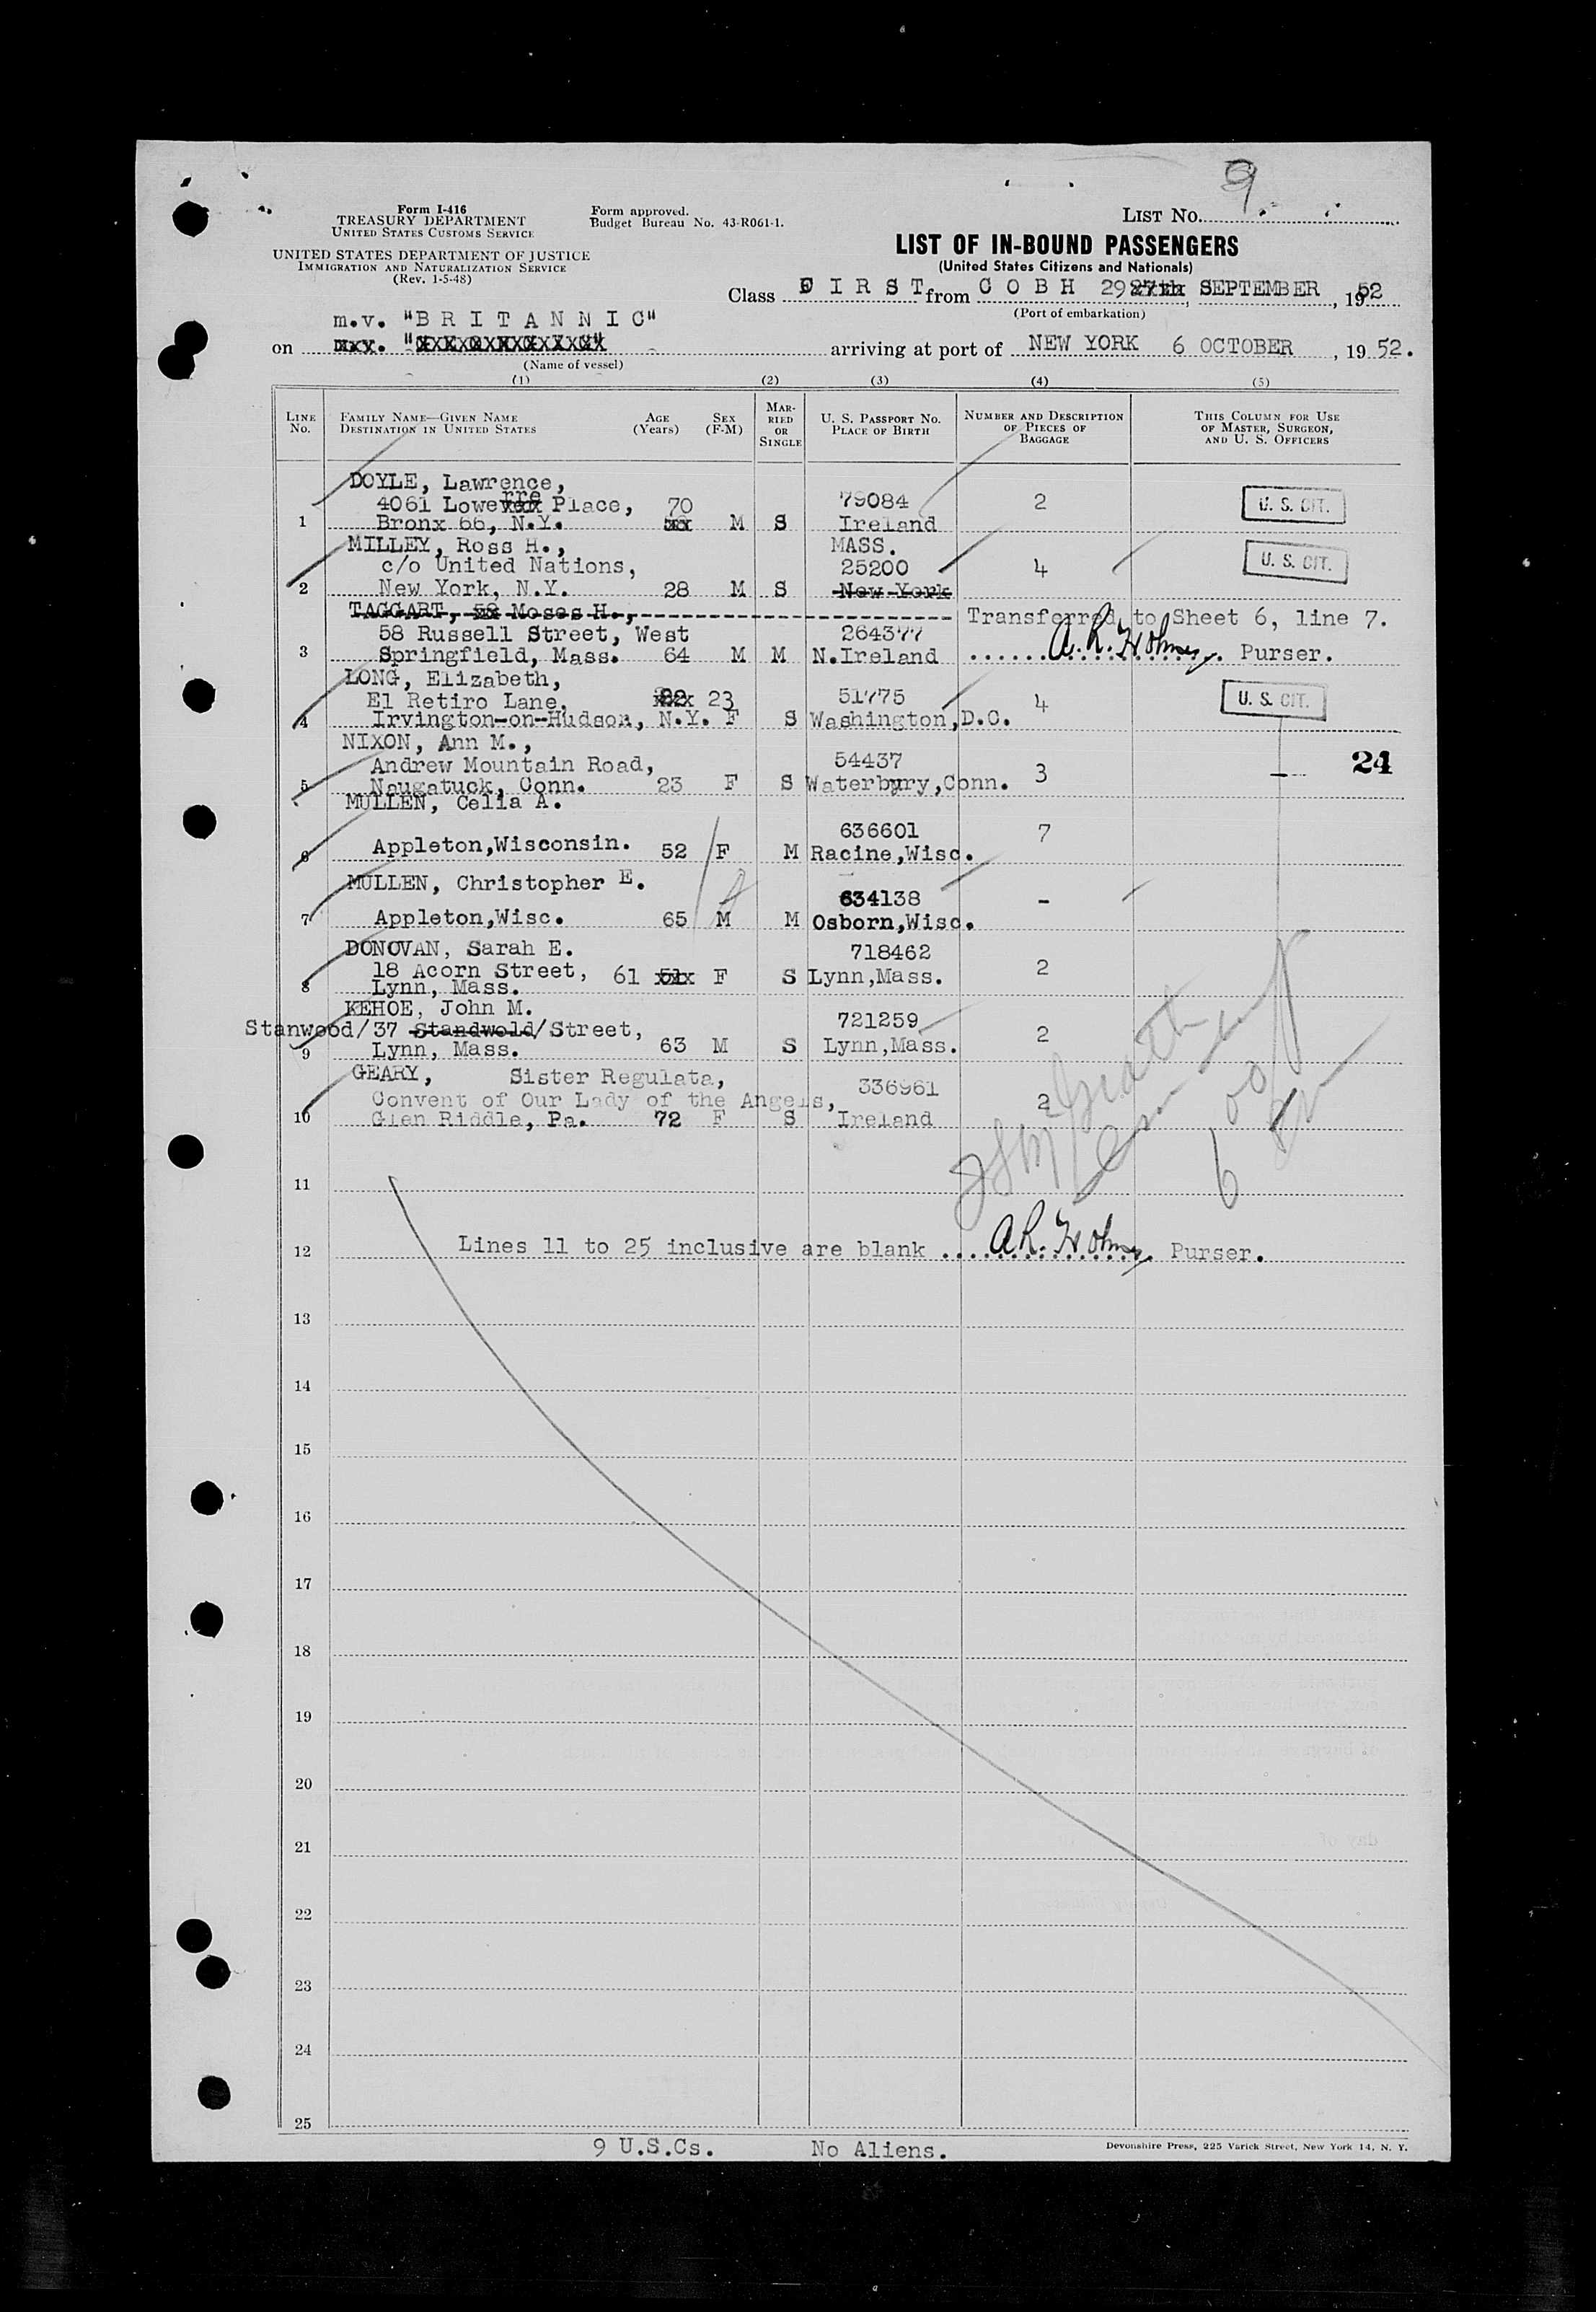 9
Form I-416
TREASURY DEPARTMENT
UNITED STATES CUSTOMS SERVICE
UNITED STATES DEPARTMENT OF JUSTICE
IMMIGRATION AND NATURALIZATION SERVICE
(Rev. 1-5-48)
Form approved.
Budget Bureau No. 43-R061-1.
LIST No.
LIST OF IN-BOUND PASSENGERS
(United States Citizens and Nationals)
Class FIRST from COBH 29 27th SEPTEMBER, 1952
(Port of embarkation)
m.v. "BRITANNIC"
on arriving at port of NEW YORK 6 OCTOBER, 1952.
(Name of vessel)
(1) (2) (3) (4) (5)
LINE No.
FAMILY NAME—GIVEN NAME
DESTINATION IN UNITED STATES
AGE (Years)
SEX (F-M)
MARRIED OR SINGLE
U. S. PASSPORT No.
PLACE OF BIRTH
NUMBER AND DESCRIPTION OF PIECES OF BAGGAGE
THIS COLUMN FOR USE OF MASTER, SURGEON, AND U. S. OFFICERS
DOYLE, Lawrence,
4061 Lowerre Place, 70 79084 2 U. S. CIT.
1 Bronx 66, N.Y. M S Ireland
MILLEY, Ross H., MASS.
c/o United Nations, 25200 4 U. S. CIT.
2 New York, N.Y. 28 M S New York
TAGGART, 58 Moses H., Transferred to Sheet 6, line 7.
58 Russell Street, West 264377
3 Springfield, Mass. 64 M M N.Ireland A. R. Holmes Purser.
LONG, Elizabeth,
El Retiro Lane, 23 51775 4 U. S. CIT.
4 Irvington-on-Hudson, N.Y. F S Washington,D.C.
NIXON, Ann M.,
Andrew Mountain Road, 54437 3 24
5 Naugatuck, Conn. 23 F S Waterbury,Conn.
MULLEN, Celia A.
636601 7
6 Appleton,Wisconsin. 52 F M Racine,Wisc.
MULLEN, Christopher E.
634138 -
7 Appleton,Wisc. 65 M M Osborn,Wisc.
DONOVAN, Sarah E. 718462
18 Acorn Street, 61 51 F S Lynn,Mass. 2
8 Lynn, Mass.
KEHOE, John M. 721259
Stanwood/37 Standwold/Street, 2
9 Lynn, Mass. 63 M S Lynn,Mass.
GEARY, Sister Regulata, 336961
Convent of Our Lady of the Angels, 2
10 Glen Riddle, Pa. 72 F S Ireland
11
12 Lines 11 to 25 inclusive are blank A. R. Holmes Purser.
13
14
15
16
17
18
19
20
21
22
23
24
25
9 U.S.Cs. No Aliens.
Devonshire Press, 225 Varick Street, New York 14, N. Y.